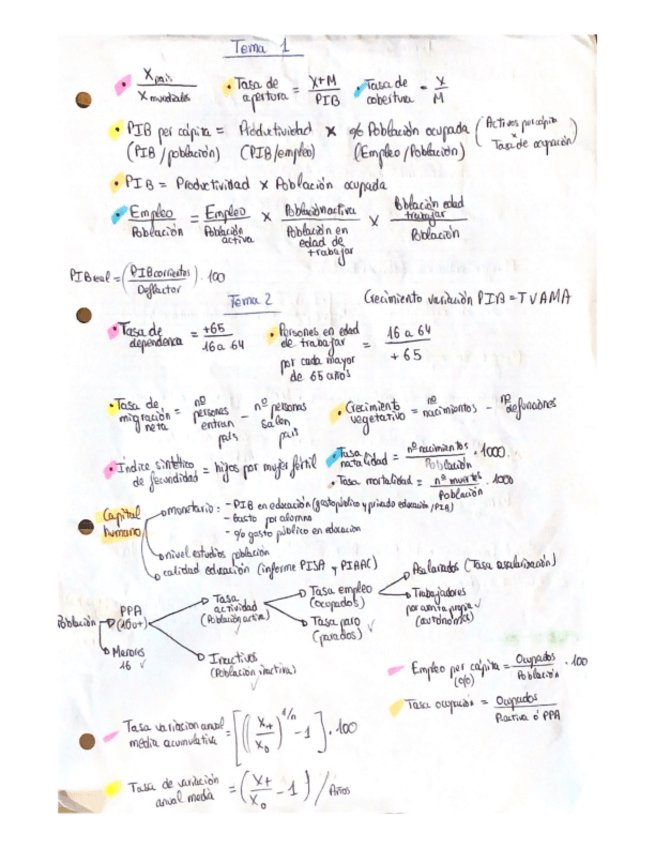 Tema 1
X país / X mundiales
Tasa de apertura = X+M / PIB
Tasa de cobertura = X / M
PIB per cápita = Productividad x % Población ocupada (Activos per cápita x Tasa de ocupación)
(PIB/población) (PIB/empleo) (Empleo/Población)
PIB = Productividad x Población ocupada
Empleo / Población = Empleo / Población activa x Población activa / Población en edad de trabajar x Población edad trabajar / Población
PIBreal = (PIBcorrientes / Deflactor) · 100
Tema 2
Crecimiento variación PIB = TVAMA
Tasa de dependencia = +65 / 16 a 64
Personas en edad de trabajar por cada mayor de 65 años = 16 a 64 / +65
Tasa de migración neta = nº personas entran país - nº personas salen país
Crecimiento vegetativo = nº nacimientos - nº defunciones
Índice sintético de fecundidad = hijos por mujer fértil
Tasa natalidad = nº nacimientos / Población · 1000
Tasa mortalidad = nº muertes / Población · 1000
Capital humano
monetario: - PIB en educación (gasto público y privado educación/PIB)
- Gasto por alumno
- % gasto público en educación
nivel estudios población
calidad educación (informe PISA y PIAAC)
Población
PPA (16 o +)
Menores 16 ✓
Tasa actividad (Población activa)
Inactivos (Población inactiva) ✓
Tasa empleo (ocupados)
Tasa paro (parados) ✓
Asalariados (Tasa asalarización)
Trabajadores por cuenta propia ✓ (autónomos)
Empleo per cápita (%) = Ocupados / Población · 100
Tasa ocupación = Ocupados / Pactiva ó PPA
Tasa variacion anual media acumulativa = [(Xt / X0)^1/n - 1] · 100
Tasa de variación anual media = (Xt / X0 - 1) / Años